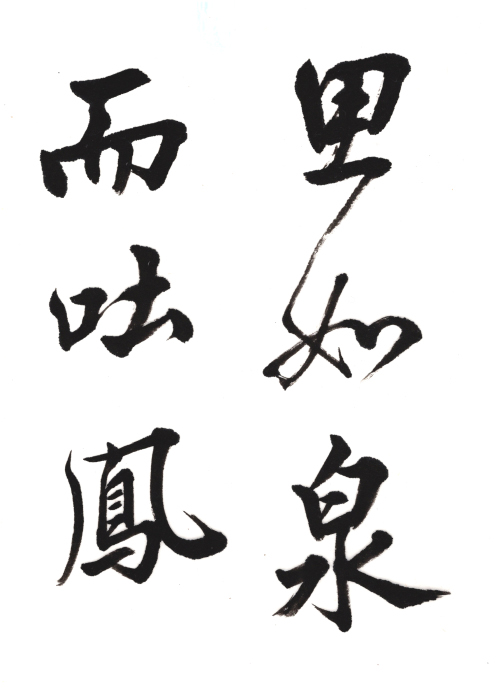 里如泉
而吐鳳